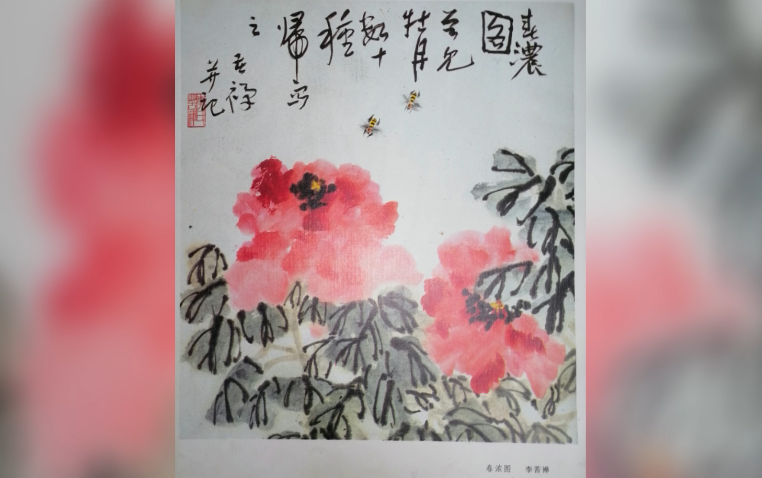 春濃
圖
曾見
牡丹
數十
種
歸寫
之
苦禪
并記
春浓图 李苦禅